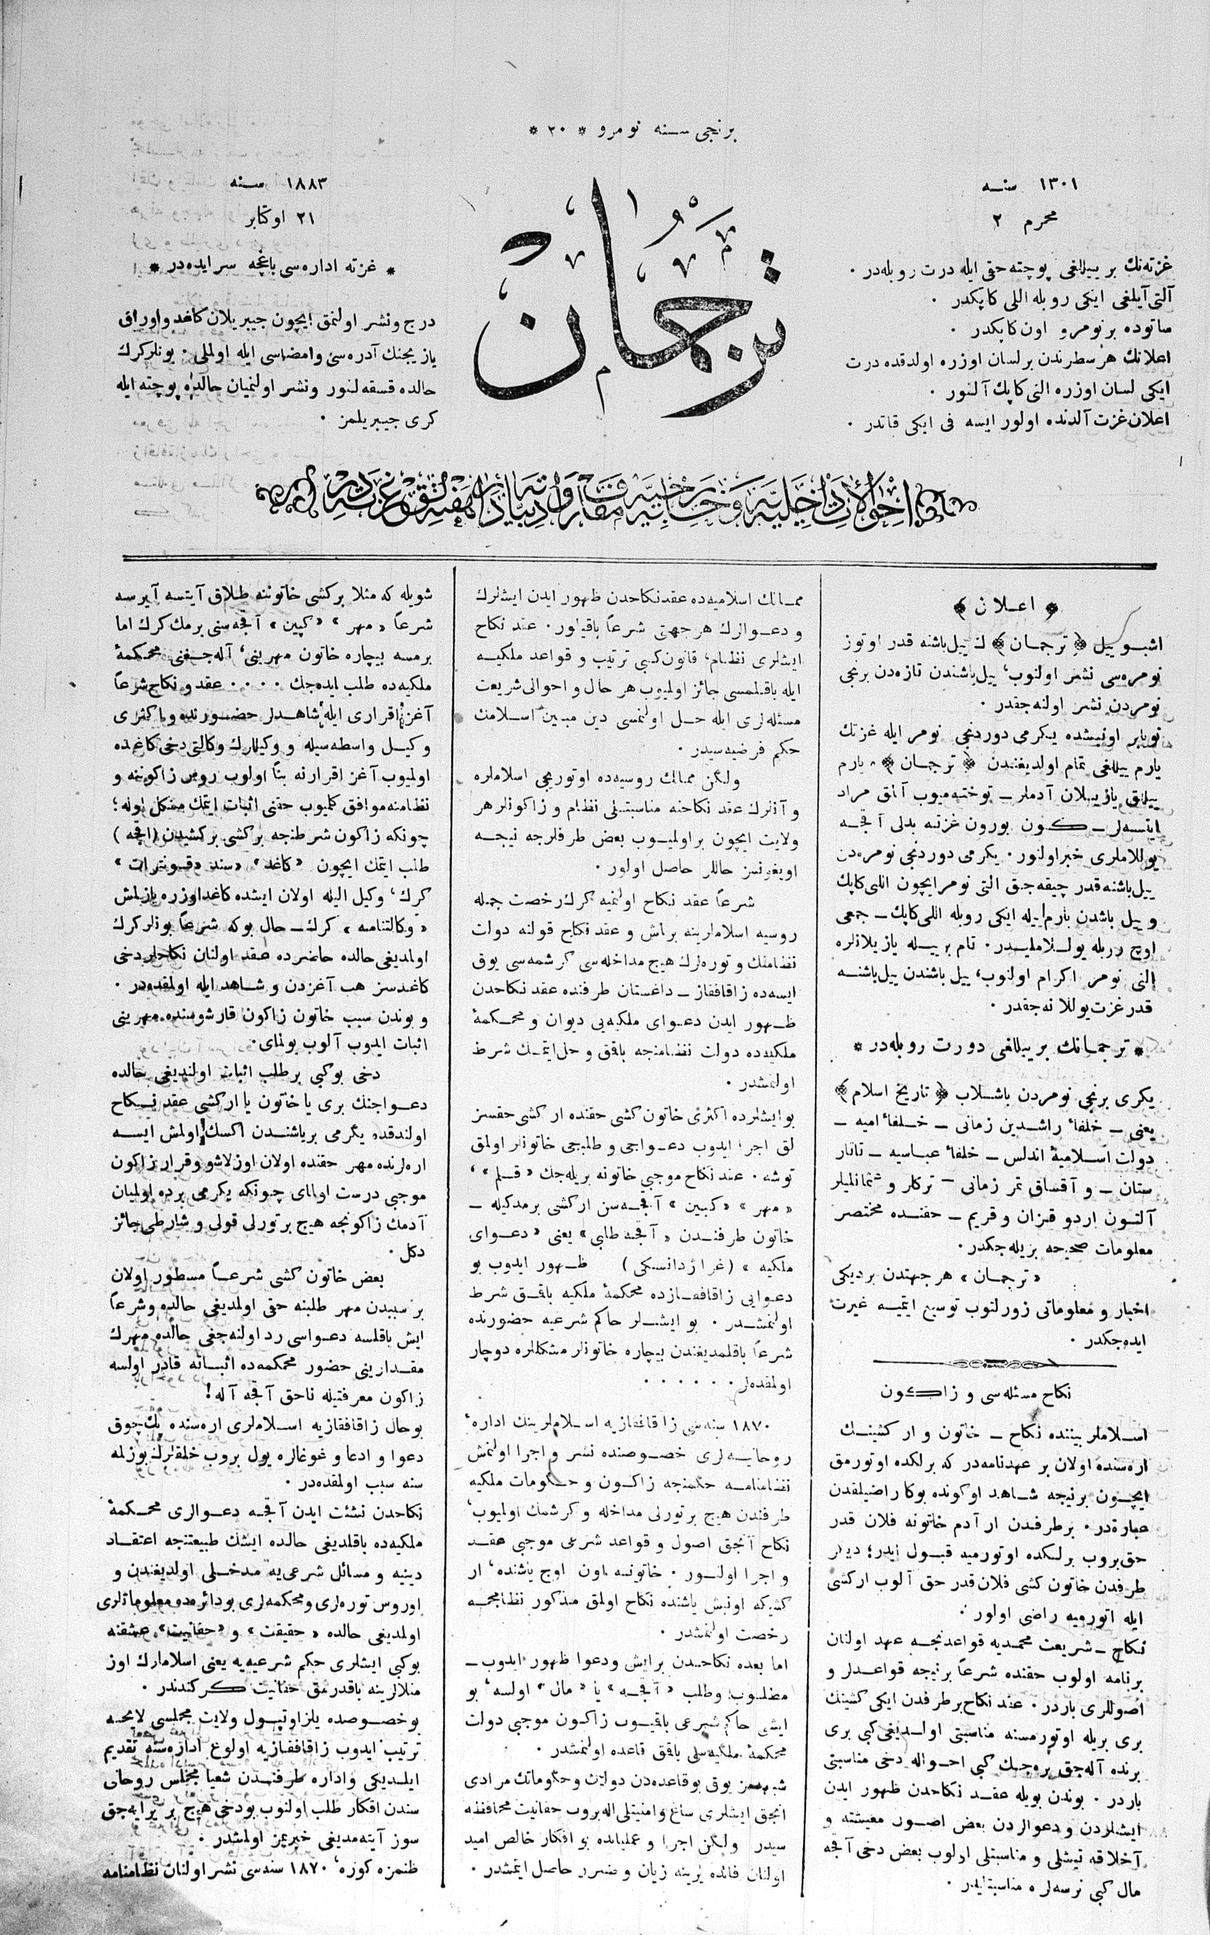 برنجی سنه نومرو * ٢٠ *
١٣٠١ سنه
محرم ٢
غزته‌نك بر ییللغی پوچته حقی ایله درت روبله‌در .
آلتی آیلغی ایکی روبله اللی کاپكدر .
صاتوده بر نومرو اون کاپكدر .
اعلانك هر سطرندن بر لسان اوزره اولدقده درت
ایکی لسان اوزره التی کاپك آلنور .
اعلان غزت آلدنده اولور ایسه فی ایکی قاتدر .
ترجمان
١٨٨٣ سنه
٢١ اوکتابر
* غزته اداره‌سی باغچه سرایده‌در *
درج و نشر اولنمق ایچون جیبریلان کاغد و اوراق
یازیجنك آدره‌سی و امضاسی ایله اولملی . بونلر کرك
حالده قسقه‌لنور و نشر اولنمیان حالده پوچته ایله
کری جیبریلمز .
﴿ اعلان ﴾
اشبو ییل ﴿ ترجمان ﴾ ك ییل باشنه قدر اوتوز
نومره‌سی نشر اولنوب، ییل باشندن تازه‌دن برنجی
نومردن نشر اولنه جقدر .
نویابر اونیشده یکرمی دوردنجی نومر ایله غزتك
یارم ییللغی تمام اولدیغندن ﴿ ترجمان ﴾ ه یارم
ییللق یازیلان آدملر — توختمیوب آلمق مراد
ایتسه‌لر — کون بورون غزته بدلی آقچه
یوللاملری خبر اولنور . یکرمی دوردنجی نومره‌دن
ییل باشنه قدر چیقه‌جق التی نومر ایچون اللی کاپك
و ییل باشدن یارم ییله ایکی روبله اللی کاپك — جمعی
اوچ روبله یوللاملیدر . تام بر ییله یازیلانلره
التی نومر اکرام اولنوب، ییل باشندن ییل باشنه
قدر غزت یوللانه جقدر .
* ترجمانك بر ییللغی دورت روبله‌در *
یکری برنجی نومردن باشلاب ﴿ تاریخ اسلام ﴾
یعنی — خلفاء راشدین زمانی — خلفاء امیه —
دولت اسلامیهٔ اندلس — خلفاء عباسیه — تاتار
ستان — و آقساق تمر زمانی — ترکلر و عثمانلیلر
آلتون اردو قزان و قریم — حقنده مختصر
معلومات صحیحه بریله‌جکدر .
« ترجمان » هر جهتدن بردیکی
اخبار و معلوماتی زورلنوب توسیع ایتمیه غیرت
ایده‌جکدر .
نکاح مسئله‌سی و زاکون
اسلاملر بیننده نکاح — خاتون و ار کشینك
اره‌سنده اولان بر عهدنامه‌در که برلکده اوتورمق
ایچون برنیجه شاهد اوکونده بوکا راضیلقدن
عبارة‌در . بر طرفدن ار آدم خاتونه فلان قدر
حق بروب برلکده اوتورمیه قبول ایدر؛ دیکر
طرفدن خاتون کشی فلان قدر حق آلوب ارکشی
ایله اتورمیه راضی اولور .
نکاح — شریعت محمدیه قواعدنجه عهد اولنان
برنامه اولوب حقنده شرعاً برنیجه قواعدلر و
اصوللری باردر . عقد نکاح بر طرفدن ایکی کشینك
بری بریله اوتورمسنه مناسبتی اولدیغی کبی بری
برنده آله‌جق بره‌جك کبی احواله دخی مناسبتی
باردر . بوندن بویله عقد نکاحدن ظهور ایدن
ایشلردن و دعوالردن بعض اصول معیشته و
آخلاقه تیشلی و مناسبتلی اولوب بعض دخی آقچه
مال کبی نرسه‌لره مناسبتلیدر .
ممالك اسلامیه‌ده عقد نکاحدن ظهور ایدن ایشلرك
و دعوالرك هر جهتی شرعاً باقیلور . عقد نکاح
ایشلری نظام، قانون کبی ترتیب و قواعد ملکیه
ایله باقیلمسی جائز اولمیوب هر حال و احوالی شریعت
مسئله‌لری ایله حل اولنمسی دین مبین اسلامك
حکم فرضیه‌سیدر .
ولکن ممالك روسیه‌ده اوتوریجی اسلاملره
و آنلرك عقد نکاحنه مناسبتلی نظام و زاکونلر هر
ولایت ایچون بر اولمیوب بعض طرفلرجه نیجه
اویغونسز حاللر حاصل اولور .
شرعاً عقد نکاح اولنمیه کرك رخصت جمله
روسیه اسلامارینه برلمش و عقد نکاح قولنه دولت
نظامنك و توره‌لرك هیچ مداخله‌سی کرشمه‌سی یوق
ایسه‌ده زاقافقاز — داغستان طرفنده عقد نکاحدن
ظهور ایدن دعوای ملکیه‌یی دیوان و محکمهٔ
ملکیه‌ده دولت نظامنجه باقق و حل ایتمك شرط
اولنمشدر .
بو ایشلرده اکثری خاتون کشی حقنده ارکشی حقسز
لق اجرا ایدوب دعواجی و طلبجی خاتونلر اولمق
توشه . عقد نکاح موجبی خاتونه بریله‌جك « قلم »،
« مهر » « کبین » آقچه‌سن ارکشی برمدکیله —
خاتون طرفندن « آقچه طلبی » یعنی « دعوای
ملکیه » (غراژدانسکی) ظهور ایدوب بو
دعوایی زاقافقازده محکمهٔ ملکیه باقق شرط
اولنمشدر . بو ایشلر حاکم شرعیه حضورنده
شرعاً باقلمدیغندن بیچاره خاتونلر مشکللره دوچار
اولمقده‌لر . . . . . .
١٨٧٠ سنه‌سی زاقافقازیه اسلاملرینك اداره‌ء
روحانیه‌لری خصوصنده نشر و اجرا اولنمش
نظامنامه حکمنجه زاکون و حکومات ملکیه
طرفندن هیچ برتورلی مداخله و کرشمك اولمیوب،
نکاح آنجق اصول و قواعد شرعی موجبی عقد
و اجرا اولنور . خاتونه اون اوچ یاشنده، ار
کشیکه اونبش یاشنده نکاح اولمق مذکور نظامجه
رخصت اولنمشدر .
اما بعده نکاحدن بر ایش و دعوا ظهور ایدوب —
مطلوب و طلب « آقچه » یا « مال » اولسه، بو
ایشی حاکم شرعی باقیوب زاکون موجبی دولت
محکمهٔ ملکیه‌سی باقق قاعده اولنمشدر .
شبهه‌مز یوق بو قاعده‌دن دولات و حکوماتك مرادی
آنجق ایشلری ساغ و امنیتلی اله بروب حقانیت محافظه
سیدر ولکن اجرا و عملیاتده بو افکار خالص امید
اولنان فائده یرینه زیان و ضرر حاصل ایتمشدر .
شویله که مثلا برکشی خاتوننه طلاق آیتسه آیرسه
شرعاً « مهر » « کبین » آقچه‌سنی برمك کرك اما
برمسه بیچاره خاتون مهرینی، آله‌جغنی محکمهٔ
ملکیه‌ده طلب ایده‌جك . . . . عقد و نکاح شرعاً
آغز اقراری ایله شاهدلر حضورنده و یا کثری
وکیل واسطه‌سیله و وکیلارك وکالتی دخی کاغده
اولمیوب آغز اقرارنه بناً اولوب روس زاکوننه و
نظامنه موافق کلمیوب حقنی اثبات ایتمك مشکل اوله؛
چونکه زاکون شرطنجه برکشی برکشیدن (اقچه)
طلب ایتمك ایچون « کاغد » « سند » « قونترات »
کرك، وکیل الینه اولان ایشده کاغد اوزره یازیلمش
« وکالتنامه » کرك — حال بوکه شرعاً بونلر کرك
اولمدیغی حالده حاضرده عقد اولنان نکاحلر دخی
کاغدسز هب آغزدن و شاهد ایله اولمقده‌در .
و بوندن سبب خاتون زاکون قارشوسنده مهرینی
اثبات ایدوب آلوب بولمای .
دخی بوکبی بر طلب اثبات اولندیغی حالده
دعواجنك بری یا خاتون یا ارکشی عقد نکاح
اولندقده یگرمی بر یاشندن اکسك اولمش ایسه
اره‌لرنده مهر حقنده اولان اوزلاشو و قرار زاکون
موجبی درست اولمای چونکه یکرمی برده اولمیان
آدمك زاکونجه هیچ برتورلی قولی و شارطی جائز
دکل .
بعض خاتون کشی شرعاً مسطور اولان
بر سببدن مهر طلبنه حقی اولمدیغی حالده و شرعاً
ایش باقلسه دعواسی رد اولنه‌جغی حالده مهرك
مقدارینی حضور محکمه‌ده اثباته قادر اولسه
زاکون معرفتیله ناحق آقچه آله !
بو حال زاقافقازیه اسلاملری اره‌سنده پك چوق
دعوا و ادعا و غوغالره یول بروب خلقلرك بوزلمه
سنه سبب اولمقده‌در .
نکاحدن نشئت ایدن آقچه دعوالری محکمهٔ
ملکیه‌ده باقلدیغی حالده ایشك طبیعتنجه اعتقاد
دینیه و مسائل شرعیه مدخلی اولدیغندن و
اوروس توره‌لری و محکمه‌لری بو دائره‌ده معلوماتلری
اولمدیغی حالده « حقیقت » و « حقانیت » عشقنه
بوکبی ایشلری حکم شرعیه‌یه یعنی اسلامارك اوز
منلالرینه باقدرمق حقانیت کرکندندر .
بو خصوصده یلزاوتپول ولایت مجلسی لایحه
ترتیب ایدوب زاقافقازیه اولوغ اداره‌سنه تقدیم
ایلدیکی و اداره طرفندن شعیا مجلس روحانی
سندن افکار طلب اولنوب بو دخی هیچ بر یرابه‌جق
سوز آیته‌مدیغی خبریمز اولمشدر .
ظنمزه کوره، ١٨٧٠ سنه‌سی نشر اولنان نظامنامه